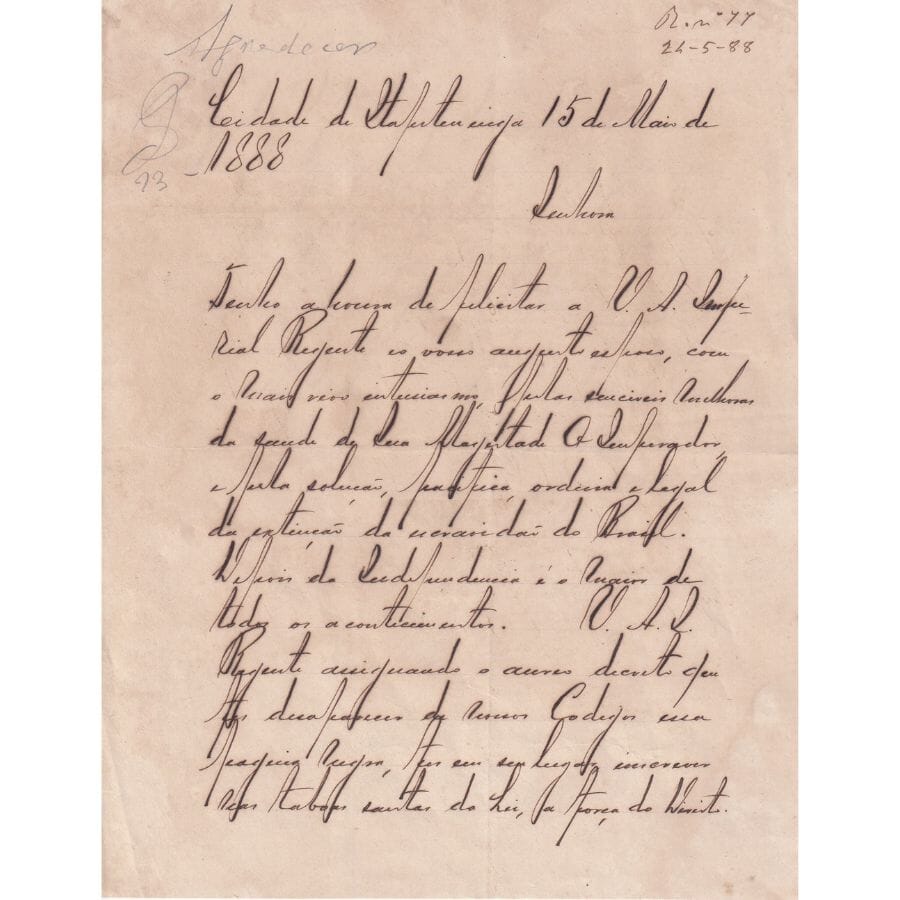 R. nº 77
24-5-88
Agradecer
23
Cidade de Itapetininga 15 de Maio de
1888
Senhora
Tenho a honra de felicitar a V. A. Impe-
rial Regente e o vosso augusto esposo, com
o mais vivo entusiasmo, pelas senciveis melhoras
da saude de Sua Magestade O Imperador,
e pela solução, pacifica, ordeira e legal
da extincção da escravidão do Brasil.
Depois da Independencia é o maior de
todos os acontecimentos. V. A. I.
Regente assignando o aureo decreto que
fez desaparecer de nossos Codigos essa
pagina negra, fez em seu lugar, inscrever
nas taboas santas da Lei, a força do Direito.